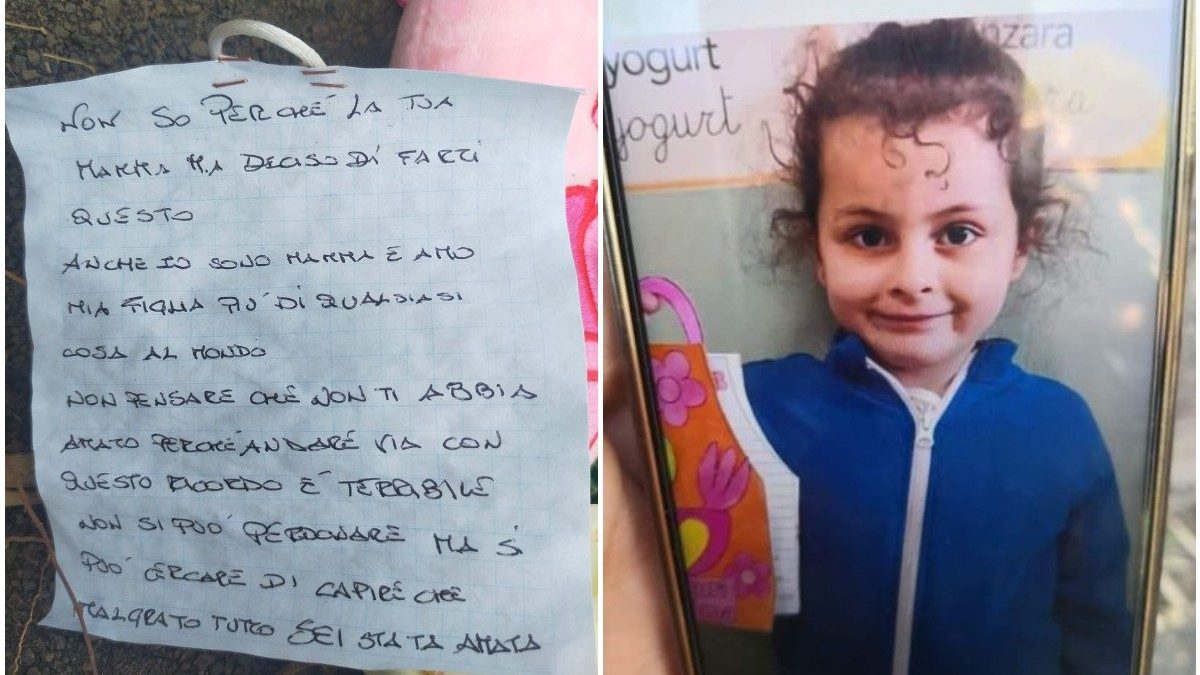 NON SO PERCHÉ LA TUA
MAMMA HA DECISO DI FARTI
QUESTO
ANCHE IO SONO MAMMA E AMO
MIA FIGLIA PIÙ DI QUALSIASI
COSA AL MONDO
NON PENSARE CHE NON TI ABBIA
AMATO PERCHÉ ANDARE VIA CON
QUESTO RICORDO È TERRIBILE
NON SI PUÒ PERDONARE MA SI
PUÒ CERCARE DI CAPIRE CHE
MALGRATO TUTTO SEI STATA AMATA
yogurt
yogurt
nzara